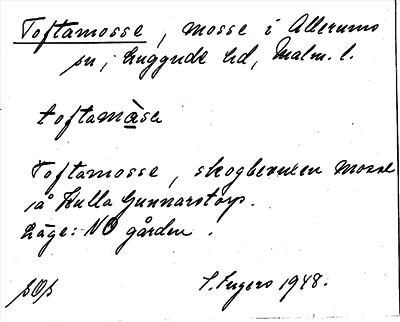 Toftamosse, mosse i Allerums
sn, Luggude hd, Malm. l.
toftamàsa
Toftamosse, skogbevuxen mosse
på Kulla Gunnarstorp.
Läge: NO gården.
S. Ingers 1948.